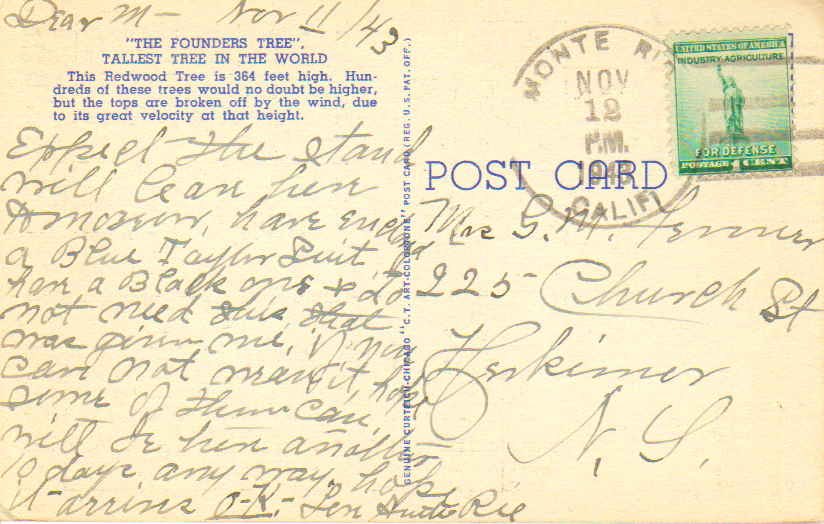 Dear M— Nov 11/43
"THE FOUNDERS TREE",
TALLEST TREE IN THE WORLD
This Redwood Tree is 364 feet high. Hun-
dreds of these trees would no doubt be higher,
but the tops are broken off by the wind, due
to its great velocity at that height.
Expect the stand
will lean here
tomorrow, have
a Blue Taylor Suit
have a Black one & do
not need this that
was given me, if you
can not wear it, hope
some of them can,
will be here another
10 days any way, hope
it arrives O-K-
GENUINE CURTEICH-CHICAGO "C.T. ART-COLORTONE" POST CARD (REG. U.S. PAT. OFF.)
POST CARD
MONTE RIO
NOV
12
P.M.
1943
CALIF.
UNITED STATES OF AMERICA
INDUSTRY AGRICULTURE
FOR DEFENSE
POSTAGE 1 CENT
Mrs G. M.
225 Church St
Herkimer
N. Y.